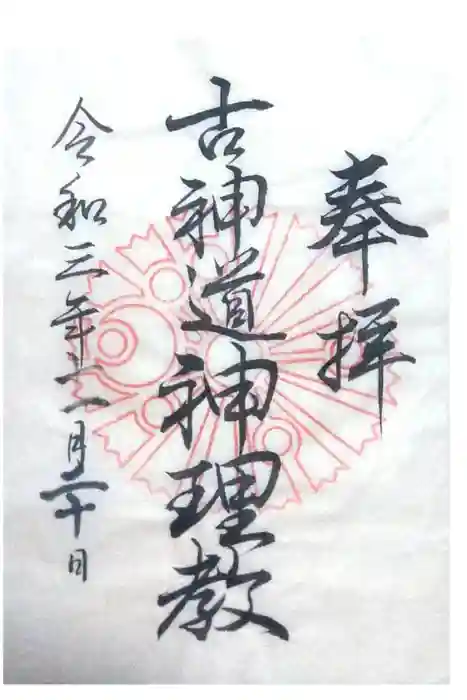 奉拝
古神道神理教
令和三年十二月二十日